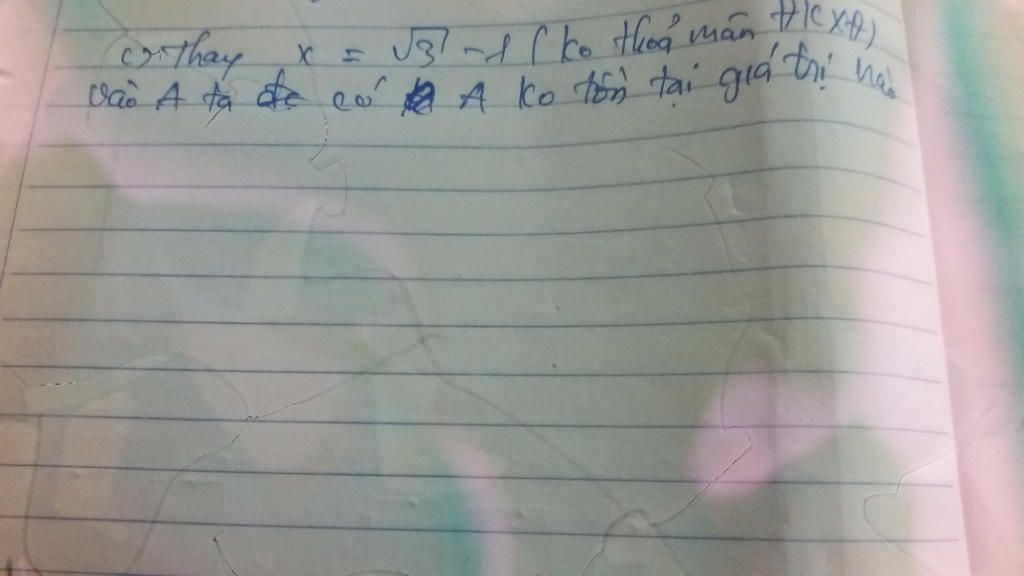 c) Thay x = √3 - 1 (ko thoả mãn ĐKXĐ)
vào A ta có A ko tồn tại giá trị nào